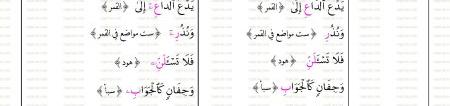 يَدْعُ ٱلدَّاعِۦٓ إِلَىٰ ﴿القمر﴾
يَدْعُ ٱلدَّاعِ إِلَىٰ ﴿القمر﴾
وَنُذُرِۦ ﴿ست مواضع في القمر﴾
وَنُذُرِ ﴿ست مواضع في القمر﴾
فَلَا تَسْـَٔلَنِّۦ ﴿هود﴾
فَلَا تَسْـَٔلْنِ ﴿هود﴾
وَجِفَانٍ كَٱلْجَوَابِۦ ﴿سبأ﴾
وَجِفَانٍ كَٱلْجَوَابِ ﴿سبأ﴾